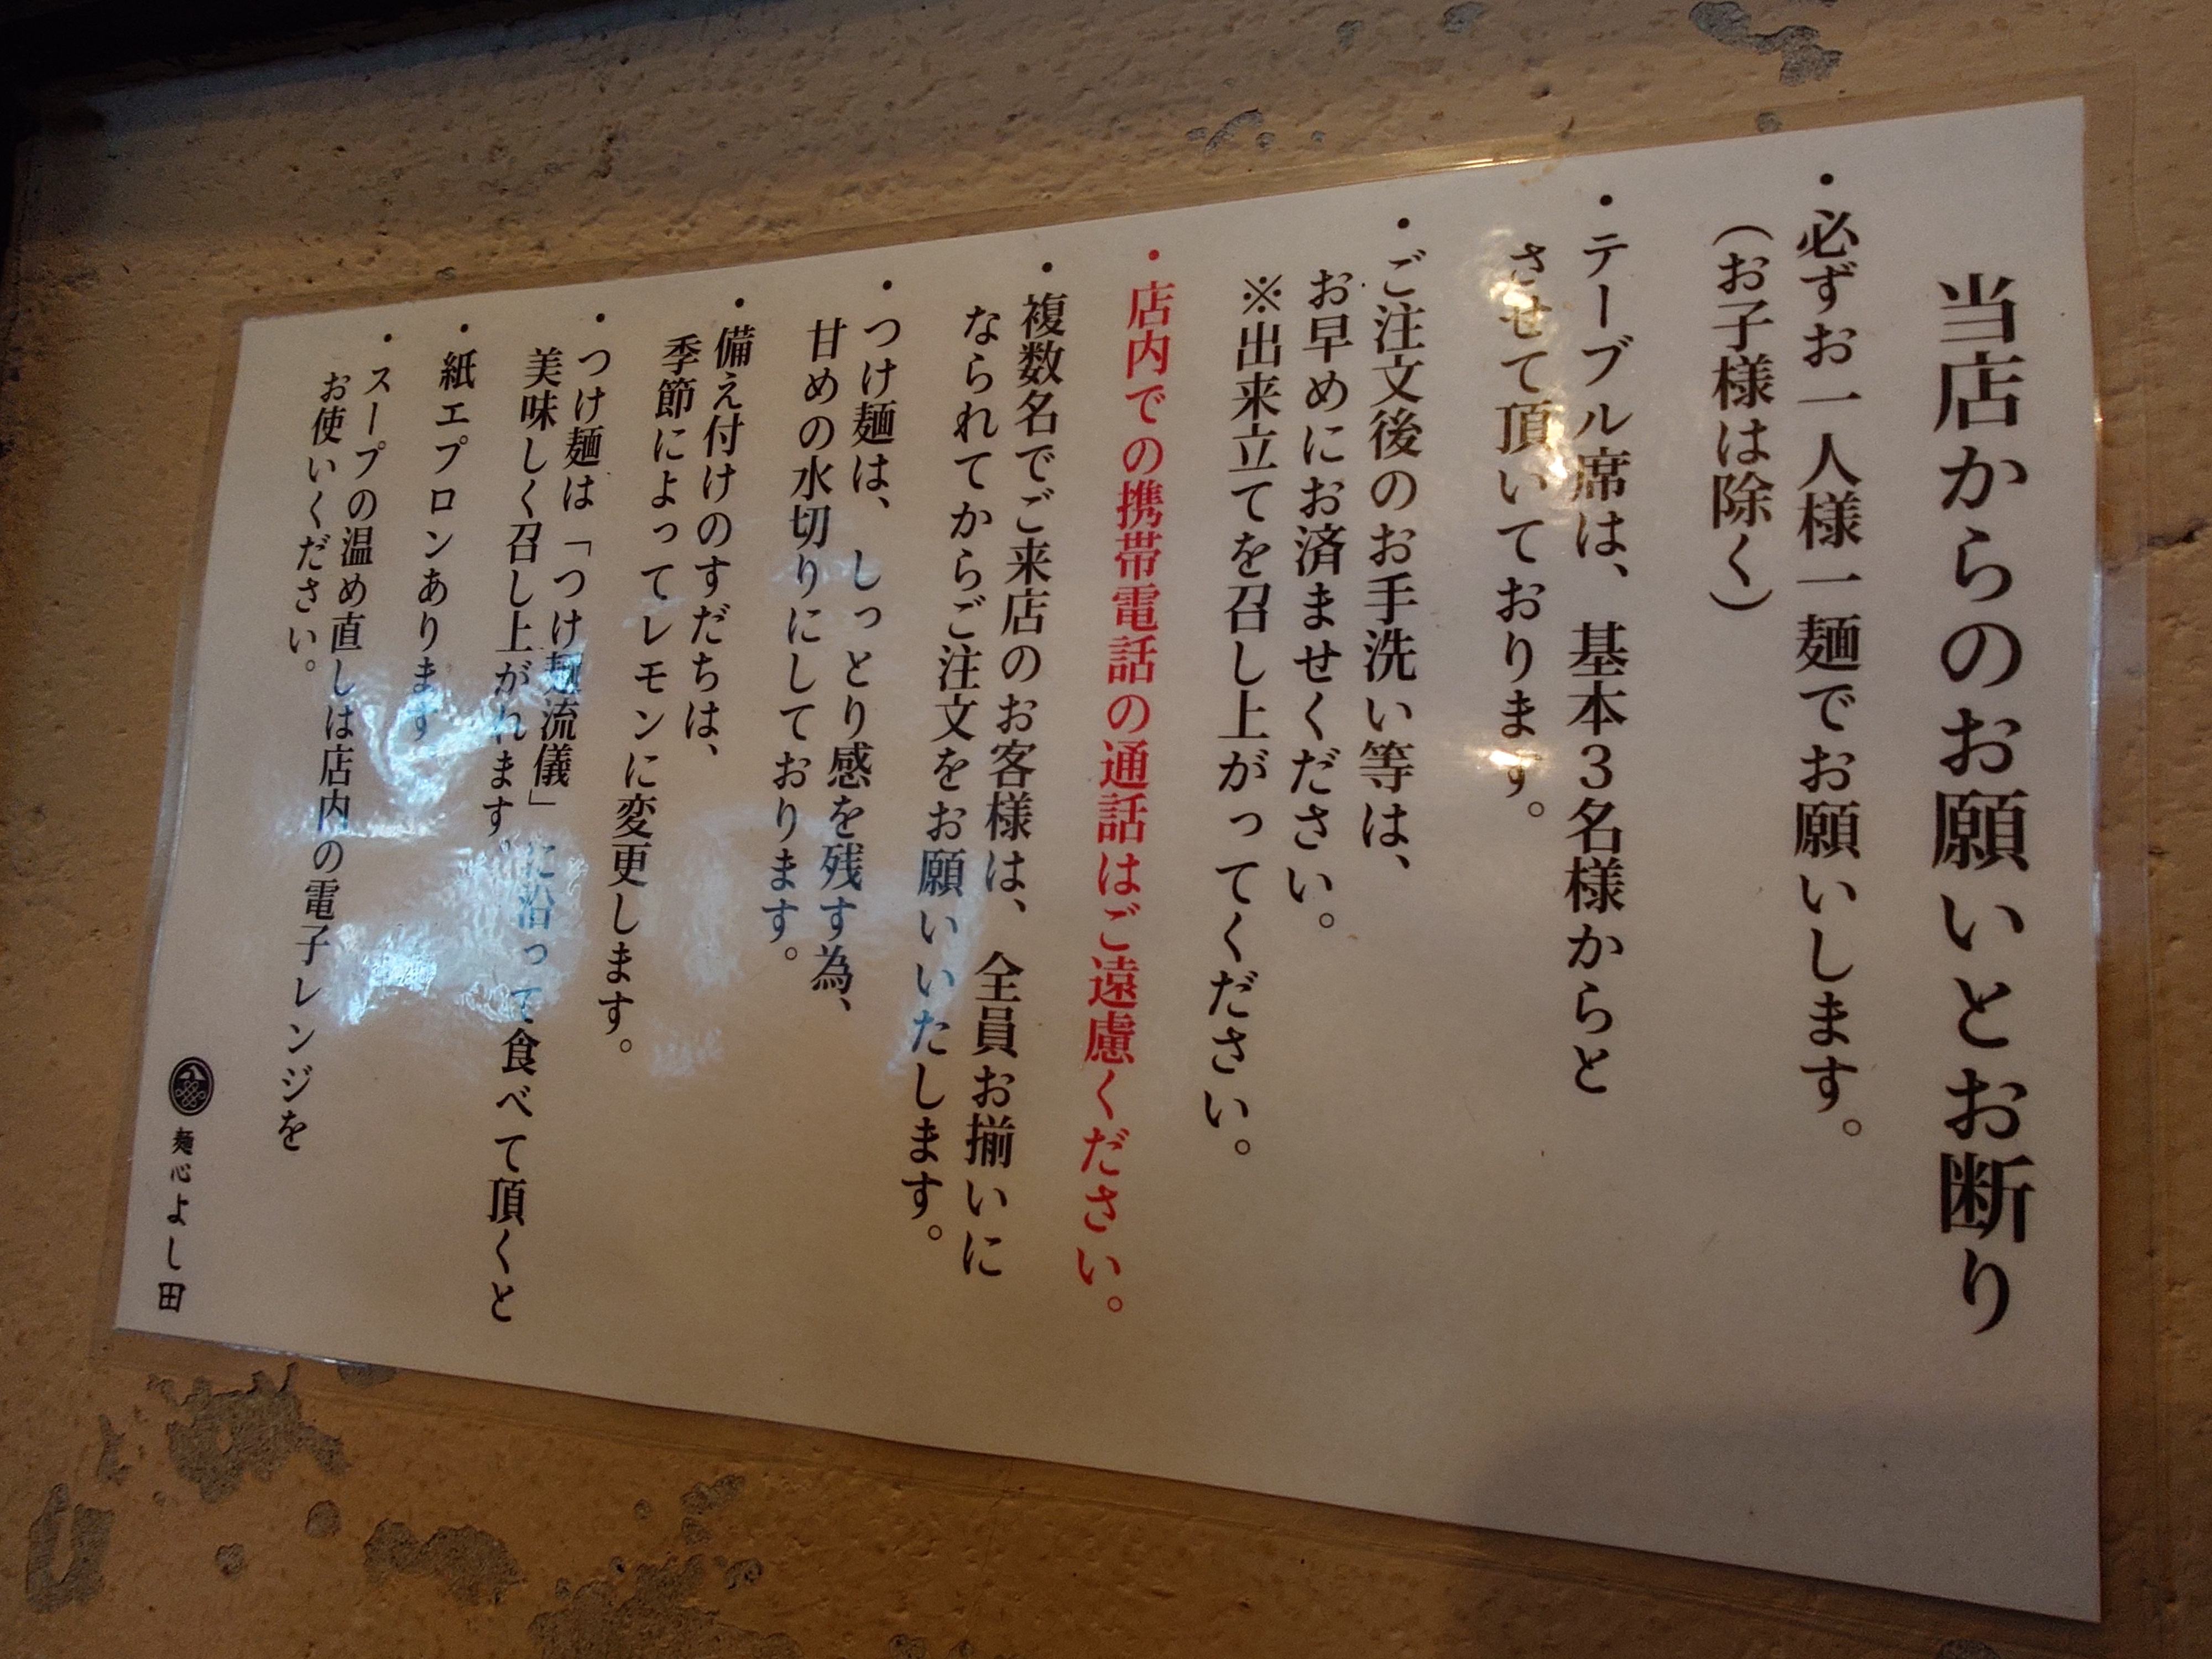 当店からのお願いとお断り
・必ずお一人様一麺でお願いします。
（お子様は除く）
・テーブル席は、基本３名様からと
させて頂いております。
・ご注文後のお手洗い等は、
お早めにお済ませください。
※出来立てを召し上がってください。
・店内での携帯電話の通話はご遠慮ください。
・複数名でご来店のお客様は、全員お揃いに
なられてからご注文をお願いいたします。
・つけ麺は、しっとり感を残す為、
甘めの水切りにしております。
・備え付けのすだちは、
季節によってレモンに変更します。
・つけ麺は「つけ麺流儀」に沿って食べて頂くと
美味しく召し上がれます。
・紙エプロンあります
・スープの温め直しは店内の電子レンジを
お使いください。
麺心よし田